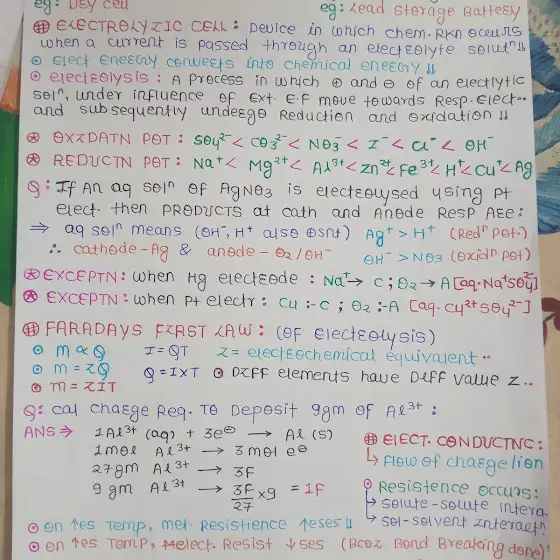 eg: Dry cell
eg: Lead storage Battery
⊕ ELECTROLYTIC CELL : Device in which chem. Rxn occurs
when a current is passed through an electrolyte solutn ⇓
⊙ elect Energy converts into chemical energy ⇓
⊙ electrolysis : A process in which ⊕ and ⊖ of an electlytic
solⁿ, under influence of Ext. E.F move towards Resp. Elect..
and subsequently undergo Reduction and Oxidation ⇓
⊛ OXIDATN POT : SO4²⁻ < CO3²⁻ < NO3⁻ < I⁻ < Cl⁻ < OH⁻
⊛ REDUCTN POT : Na⁺< Mg²⁺ < Al³⁺ < Zn²⁺ < Fe³⁺ < H⁺ < Cu⁺ < Ag
Q : If An aq solⁿ of AgNO3 is electrolysed using Pt
elect. then PRODUCTS at cath and Anode Resp Are :
⇒ aq solⁿ means (OH⁻, H⁺ also prsnt) Ag⁺ > H⁺ (Redⁿ Pot.)
∴ cathode - Ag & anode - O2 / OH⁻ OH⁻ > NO3 (Oxidⁿ pot)
⊛ EXCEPTN : when Hg electrode : Na⁺→ C ; O2 → A [aq. Na⁺SO4²⁻]
⊛ EXCEPTN : when Pt electr : Cu :- C ; O2 :- A [aq. Cu²⁺SO4²⁻]
⊕ FARADAYS FIRST LAW : (OF Electrolysis)
⊙ m ∝ Q I = QT Z = electrochemical equivalent ..
⊙ m = ZQ Q = I x T ⊙ DIFF elements have Diff value Z ..
⊙ m = ZIT
Q : cal charge Req. To Deposit 9gm of Al³⁺ :
ANS ⇒ 1Al³⁺ (aq) + 3e⊖ → Al (s)
1mol Al³⁺ → 3 mol e⊖
27gm Al³⁺ → 3F
9 gm Al³⁺ → 3F/27 x9 = 1F
⊕ Elect. CONDUCTNC :
↳ Flow of charge/ion
⊙ Resistence occurs :
↳ solute-solute intera.
↳ sol-solvent Interactⁿ
⊙ on ↑es Temp, met. Resistence ↑eses ⇓
⊙ on ↑es Temp, elect. Resist ↓ses (Bcoz Bond Breaking done